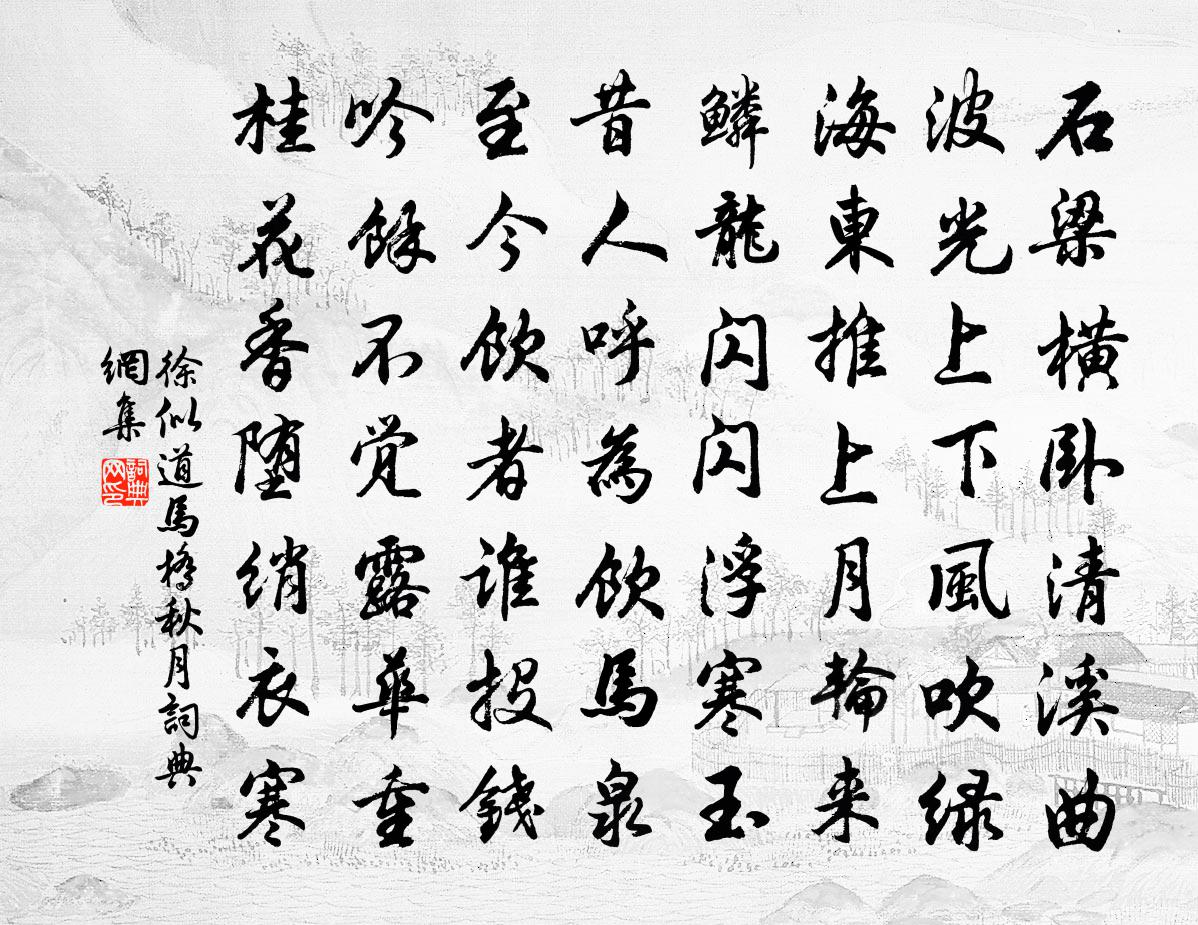 石梁橫卧清溪曲
波光上下風吹绿
海東推上月輪来
鱗龍闪闪浮寒玉
昔人呼為飲馬泉
至今飲者誰投錢
吟餘不觉露華重
桂花香堕绡衣寒
徐似道馬橋秋月詞典
網集
詞典
网印